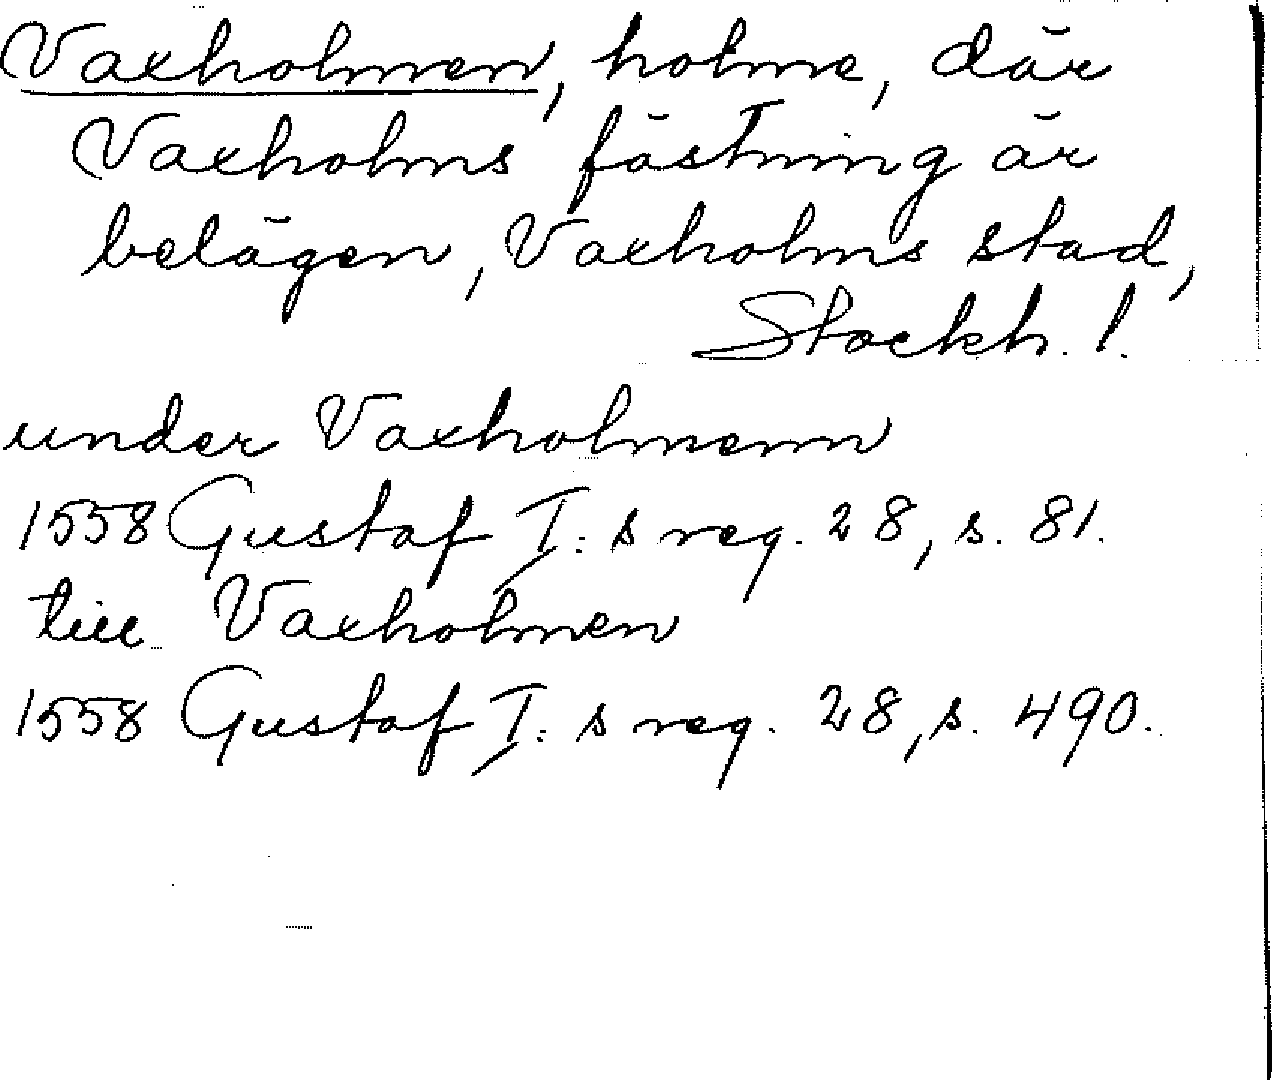 Vaxholmen, holme, där
Vaxholms fästning är
belägen, Vaxholms stad,
Stockh. l.
under Vaxholmenn
1558 Gustaf I:s reg. 28, s. 81.
till Vaxholmen
1558 Gustaf I:s reg. 28, s. 490.